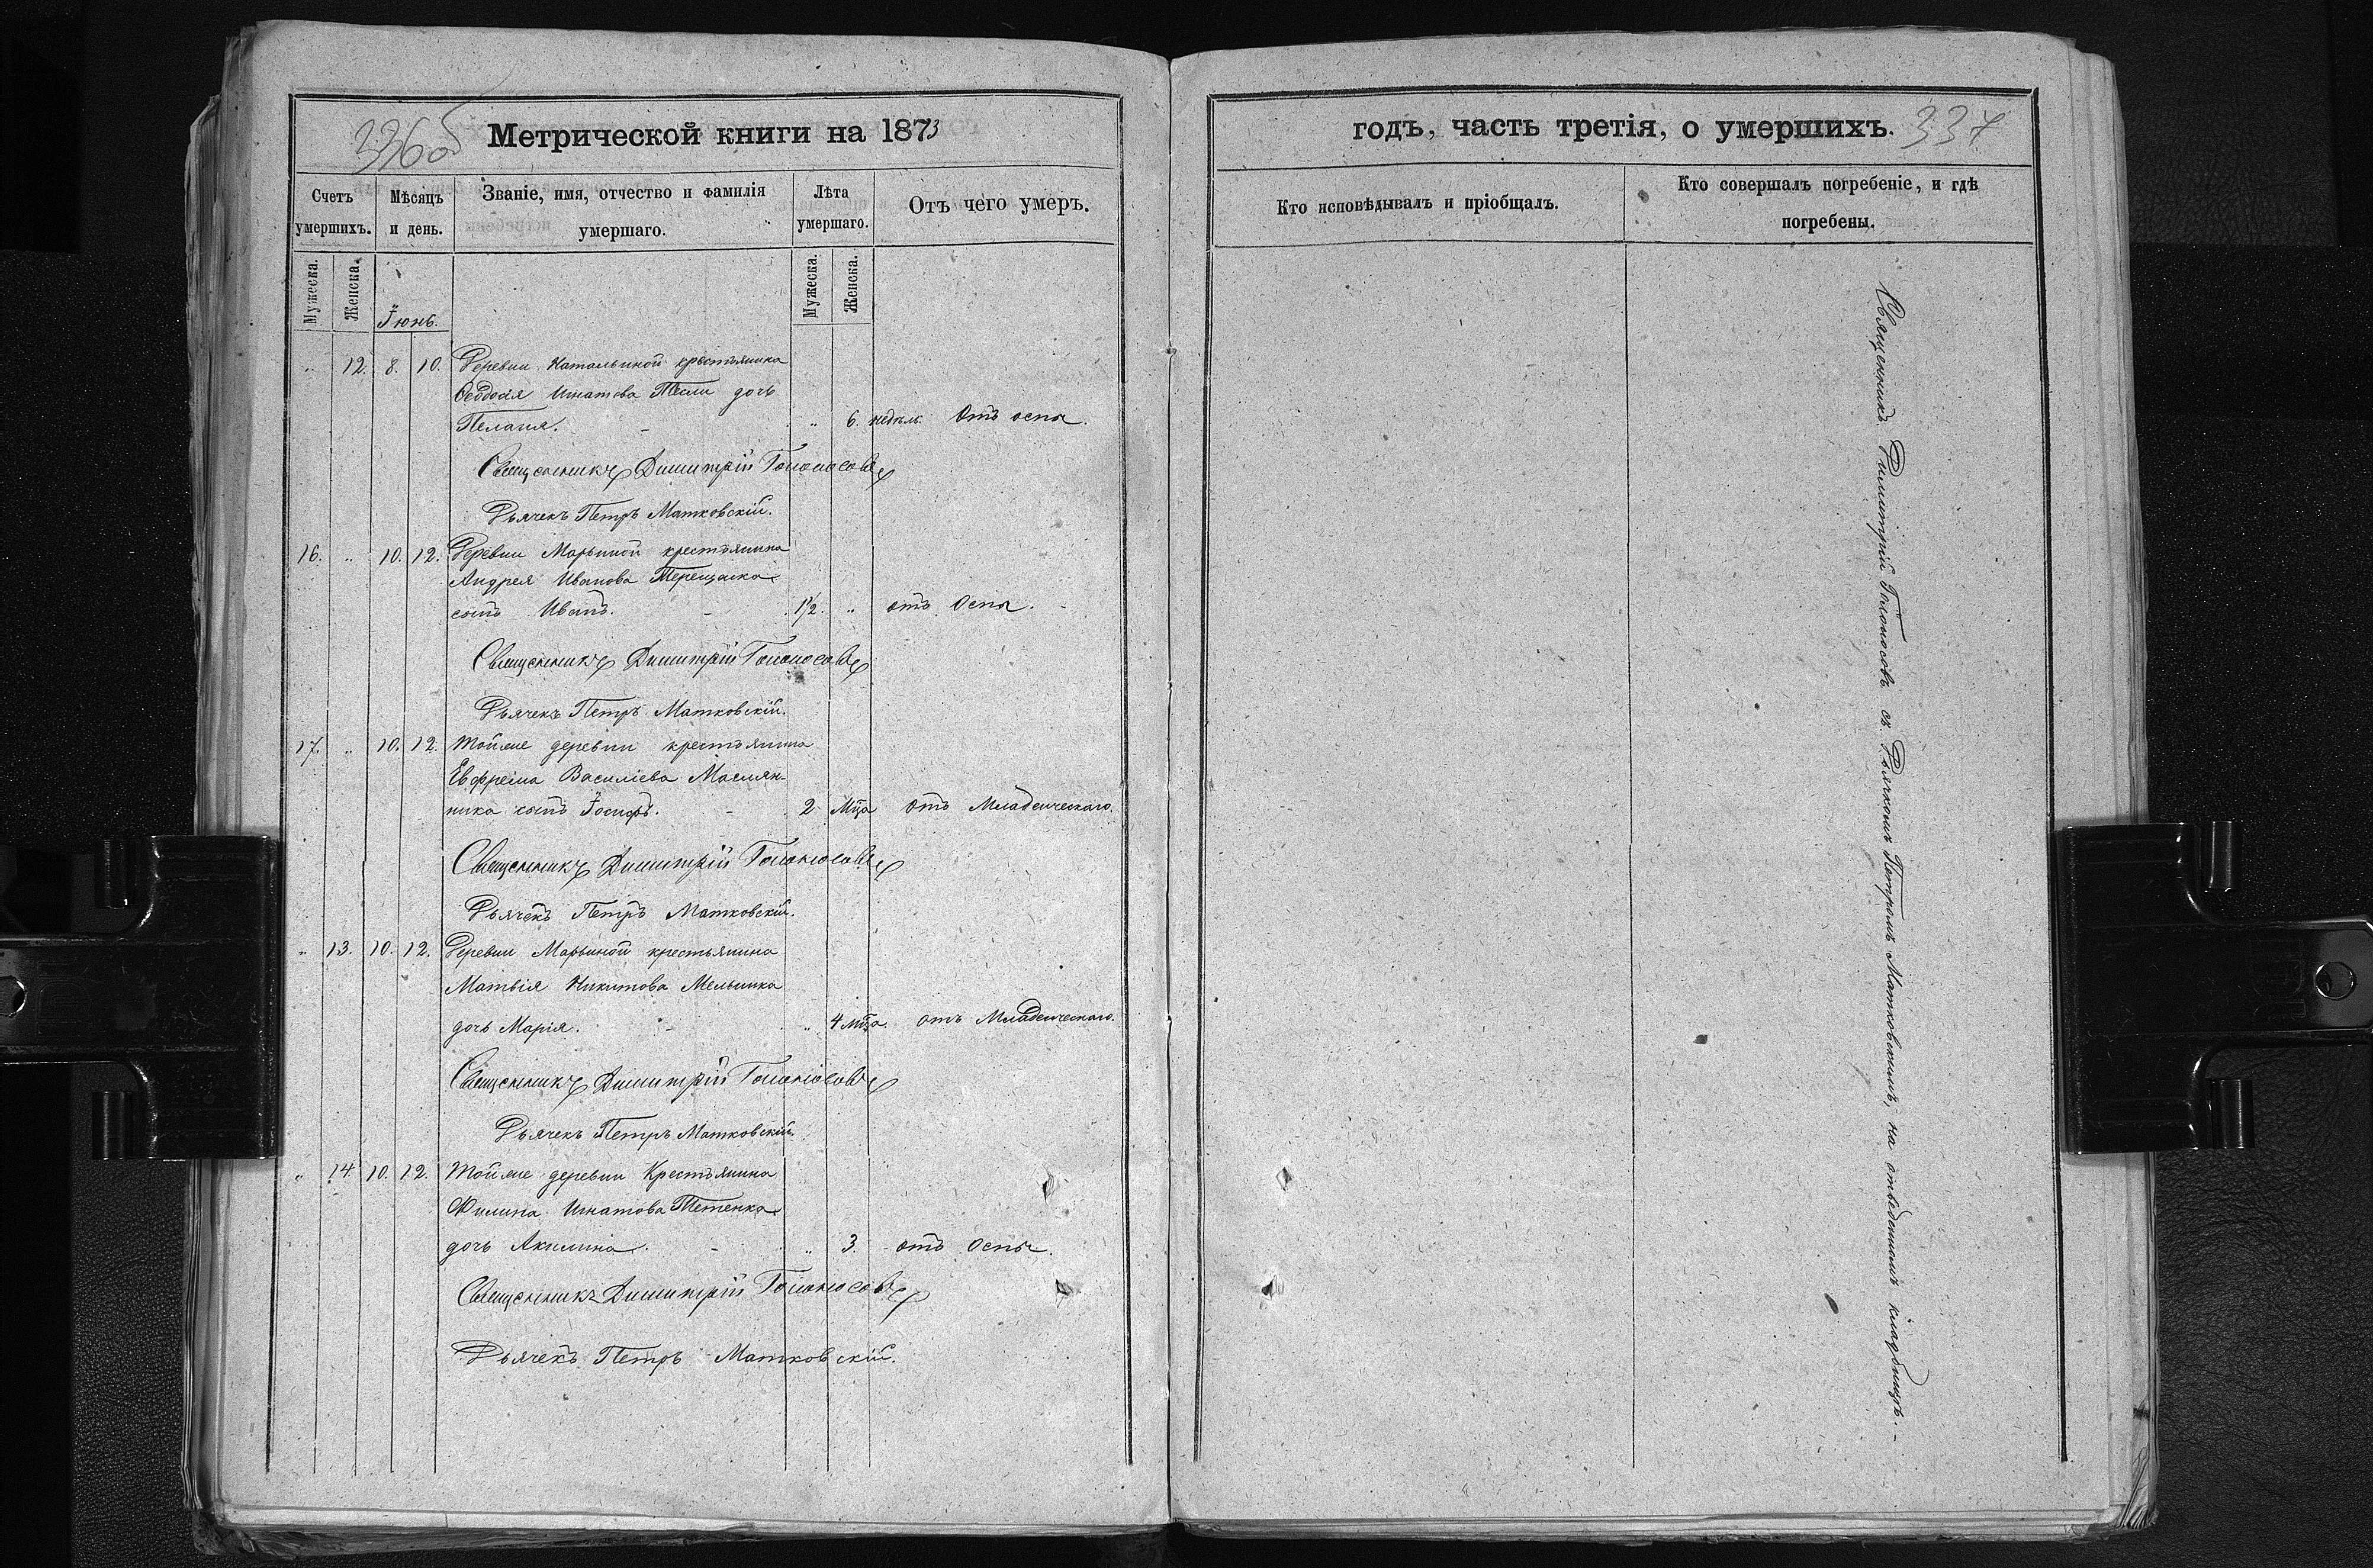 336об
Метрической книги на 1873
Счетъ умершихъ.
Мѣсяцъ и день.
Званіе, имя, отчество и фамилія умершаго.
Лѣта умершаго.
Отъ чего умеръ.
Мужеска.
Женска.
Іюнь.
Мужеска.
Женска.
„ 12. 8. 10. Деревни Натальиной крестьянина
Феодосія Игнатова Тесли дочь
Пелагія. - „ 6. недѣль. Отъ оспы.
Священникъ Димитрій Голоносовъ
Дьячекъ Петръ Матковскій.
16. „ 10. 12. Деревни Марьиной крестьянина
Андрея Иванова Терещенка
сынъ Иванъ. - 1½. „ отъ Оспы. -
Священникъ Димитрій Голоносовъ
Дьячекъ Петръ Матковскій.
17. „ 10. 12. Тойже деревни крестьянина
Евфрема Василіева Маслян-
ника сынъ Іосифъ. - 2 Мца отъ Младенческаго.
Священникъ Димитрій Голоносовъ
Дьячекъ Петръ Матковскій.
„ 13. 10. 12. Деревни Марьиной крестьянина
Матвія Никитова Мельника
дочь Марія. - „ 4 мца. отъ Младенческаго.
Священникъ Димитрій Голоносовъ
Дьячекъ Петръ Матковскій.
„ 14. 10. 12. Тойже деревни Крестьянина
Филипа Игнатова Тетенка
дочь Акилина. - „ 3. отъ Оспы.
Священникъ Димитрій Голоносовъ
Дьячекъ Петръ Матковскій.
годъ, часть третія, о умершихъ. 337
Кто исповѣдывалъ и пріобщалъ.
Кто совершалъ погребеніе, и гдѣ погребены.
Священникъ Димитрій Голоносовъ съ Дьячкомъ Петромъ Матковскимъ, на отведенномъ кладбищѣ. -